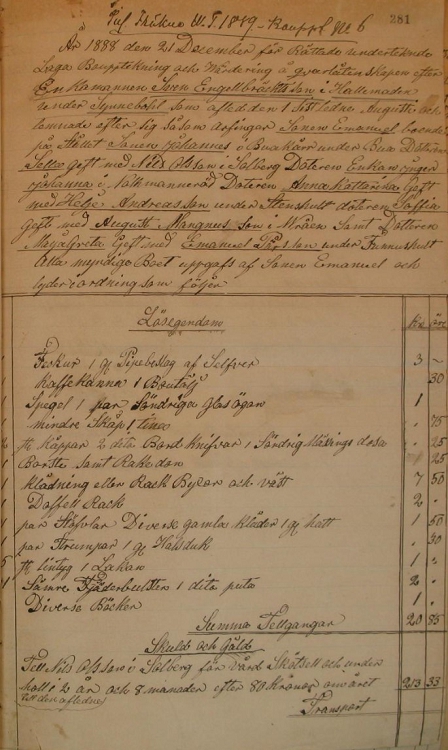 281
År 1888 den 21 December för Rättade undertecknade
Laga Bouppteckning och Wärdering å qvarlåtenskapen efter
Enkamannen Sven Engelbrächtsson i Hallemaden
under Synnebohl som afled den 1 sistledne Augusti och
lemnade efter sig såsom Arfvingar Sonen Emanuel boende
på stället Sonen Johannes i Buakärr under Bua Dottren
gift med Nils Olsson i Solberg Dottren Enkan
Johanna i Dottren Anna Kattarina Gift
med Helje Andreasson under Stenshult dottren Soffia
Gift med August Mangnusson i Wråen Samt Dottren
Gift med Emanuel under
Alla myndige Boet uppgafs af Sonen Emanuel och
lyder i ordning som följer
Lösegendom
Kr öre
1 gl Pipebeslag af Selfver 3 ~
1 Kaffekanna 1 Boutälj 30
1 Spegel 1 par Söndriga Glasögon 1
1 mindre Skåp 1 tina . 75
2 st Käppar 2 dito Bord Knifvar 1 Söndrig Mässings dosa . 25
1 Borste samt Rakedon . 25
1 klädning eller Rack Byxor och väst 7 50
1 Doffell Rack 2 .
1 par Stöfvlar Diverse gamla kläder 1 gl hatt 1 50
1 par Strumpor 1 gl Halsduk . 30
5 st lintyg 1 Lakan 1 .
1 Sämre Fjäderbulster 1 dito puta 2 .
Diverse Böcker 1 .
Summa Tellgångar 20 85
Skuld och Gäld
Tell Nils Olsson i Solberg för vård Skötsell och under
håll i 2 år och 8 månader efter 80 Kronor om året 213 33
till den aflednes
Transport